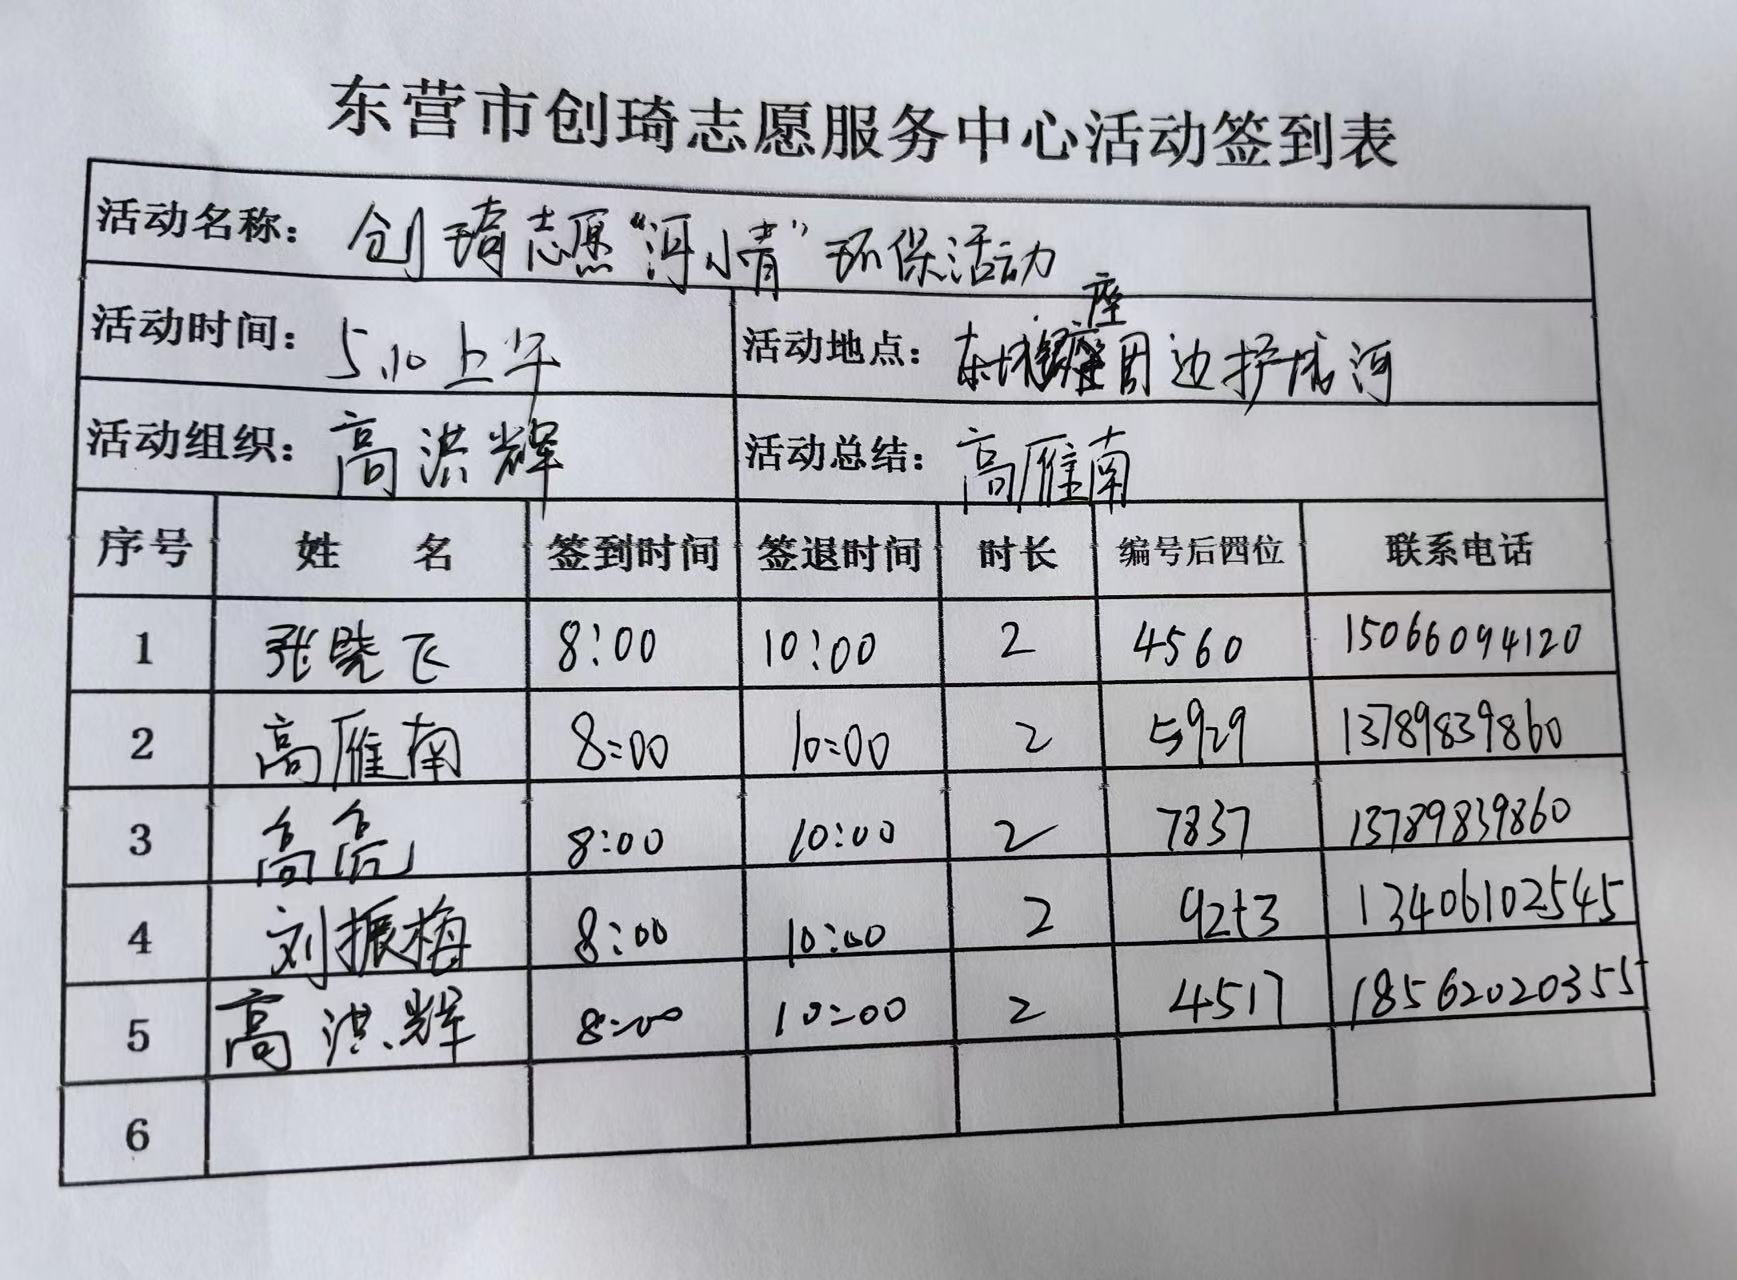 东营市创琦志愿服务中心活动签到表
活动名称： 创琦志愿“河小青”环保活动
活动时间： 5.10上午 活动地点： 东城 座周边护城河
活动组织： 高洪辉 活动总结： 高雁南
序号 姓 名 签到时间 签退时间 时长 编号后四位 联系电话
1 张晓飞 8:00 10:00 2 4560 15066094120
2 高雁南 8:00 10:00 2 5929 13789839860
3 高亮 8:00 10:00 2 7837 13789839860
4 刘振梅 8:00 10:00 2 9253 13406102545
5 高洪辉 8:00 10:00 2 4517 18562020355
6